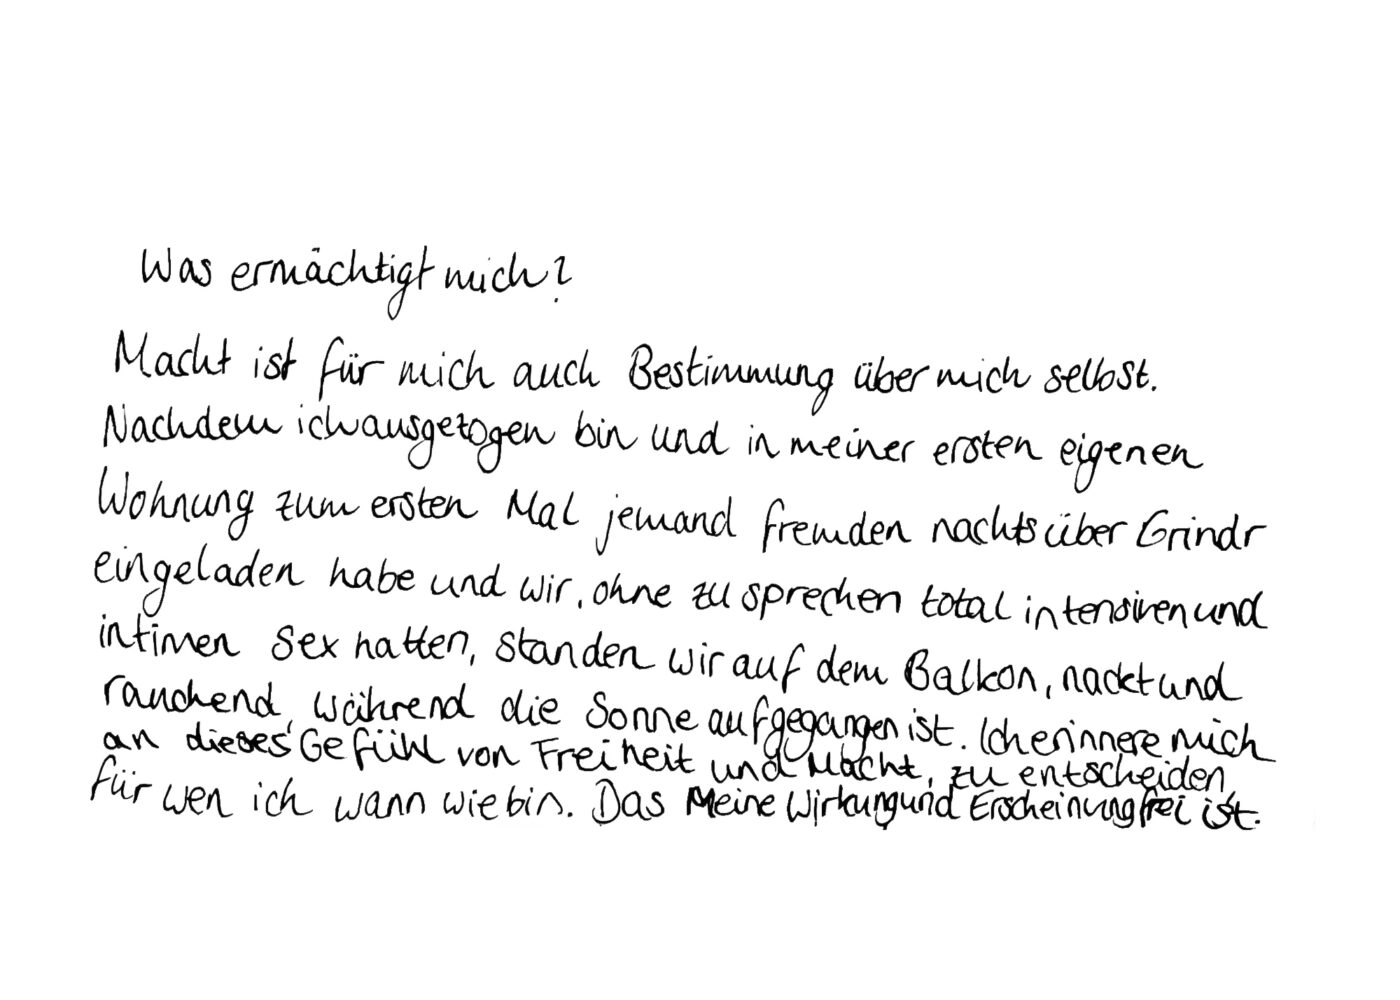 Was ermächtigt mich?
Macht ist für mich auch Bestimmung über mich selbst.
Nachdem ich ausgezogen bin und in meiner ersten eigenen
Wohnung zum ersten Mal jemand fremden nachts über Grindr
eingeladen habe und wir, ohne zu sprechen total intensiven und
intimen Sex hatten, standen wir auf dem Balkon, nackt und
rauchend, während die Sonne aufgegangen ist. Ich erinnere mich
an dieses Gefühl von Freiheit und Macht, zu entscheiden,
für wen ich wann wie bin. Das Meine Wirkung und Erscheinung frei ist.